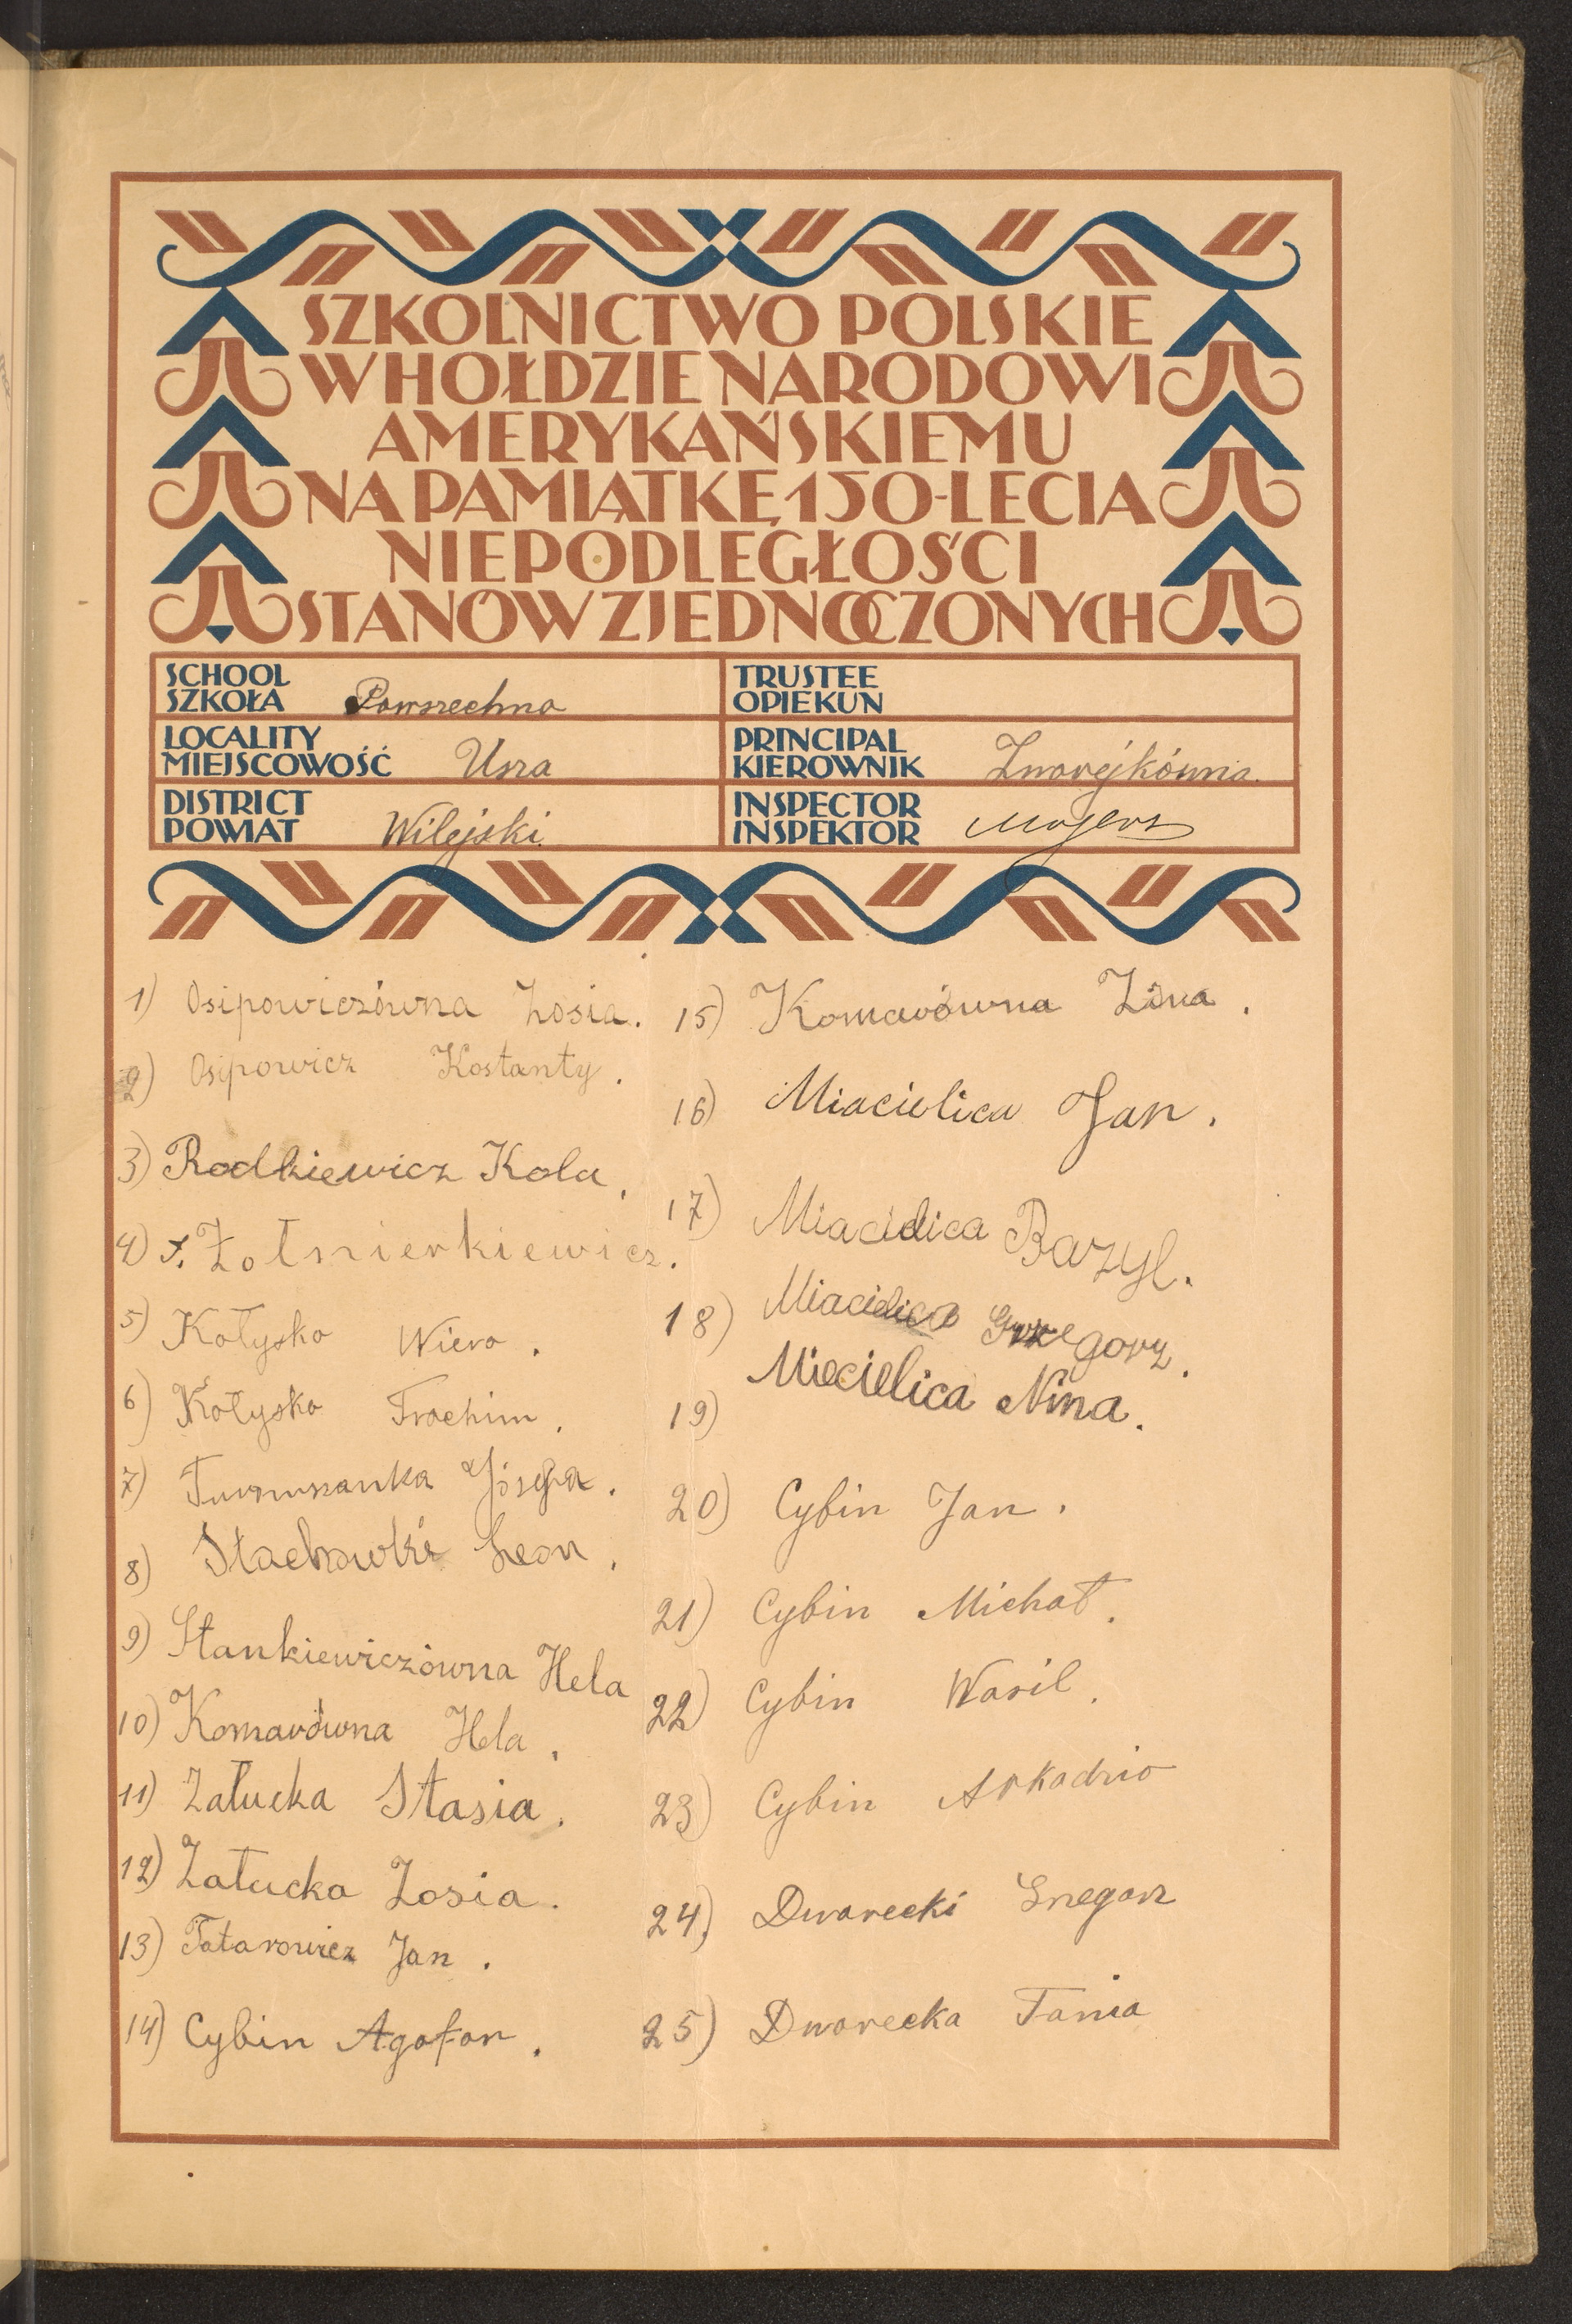 SZKOLNICTWO POLSKIE
W HOŁDZIE NARODOWI
AMERYKAŃSKIEMU
NA PAMIĄTKĘ 150-LECIA
NIEPODLEGŁOŚCI
STANÓW ZJEDNOCZONYCH
SCHOOL
SZKOŁA Powszechna
TRUSTEE
OPIEKUN
LOCALITY
MIEJSCOWOŚĆ Usza
PRINCIPAL
KIEROWNIK
DISTRICT
POWIAT Wilejski
INSPECTOR
INSPEKTOR
1) Osipowiczówna Zosia.
2) Osipowicz Kostanty.
3) Rodkiewicz Kola.
4) Żołnierkiewicz.
5) Kołysko Wiera.
6) Kołysko Trochim.
7) Józefa.
8) Leon.
9) Stankiewiczówna Hela
10) Komarówna Hela.
11) Załucka Stasia.
12) Załucka Zosia.
13) Tatarowicz Jan.
14) Cybin Agafon.
15) Komarówna Zina.
16) Miacielica Jan.
17) Miacielica Bazyl.
18) Miacielica Grzegorz.
19) Miecielica Nina.
20) Cybin Jan.
21) Cybin Michał.
22) Cybin Wasil.
23) Cybin
24) Dworecki
25) Dworecka Tania